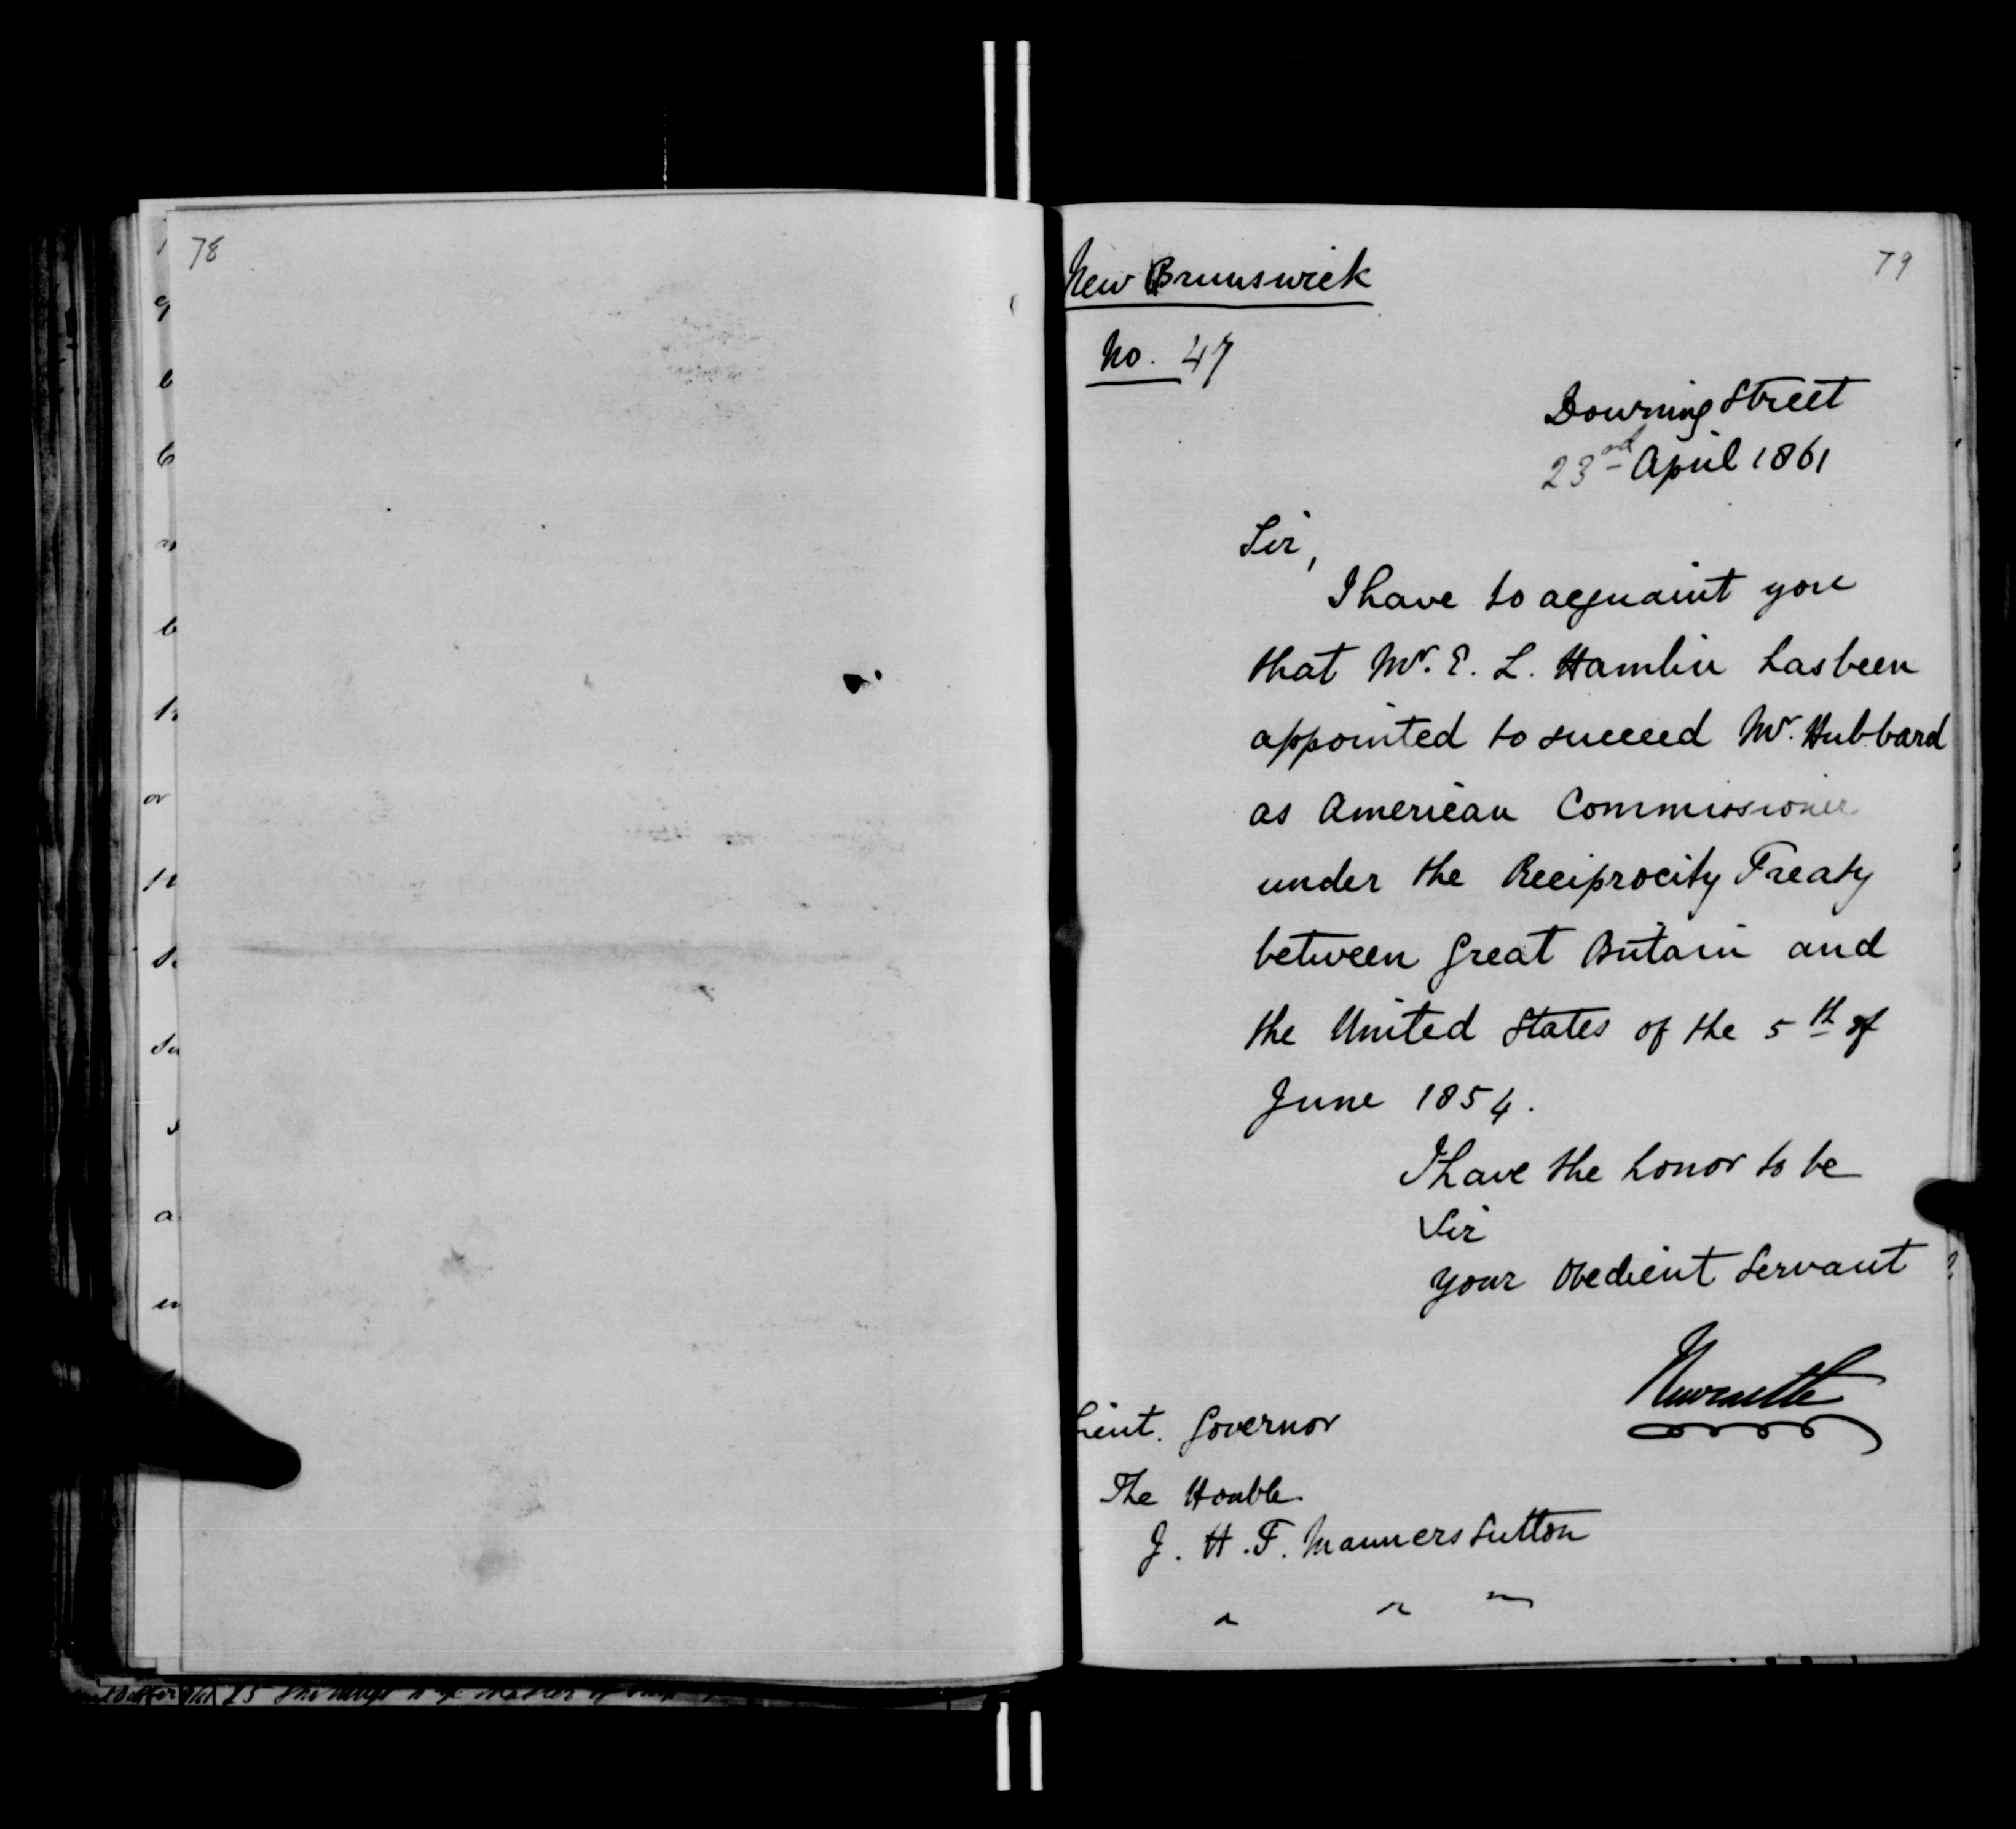 78
79
New Brunswick
No. 47
Downing Street
23rd April 1861
Sir,
I have to acquaint you
that Mr. E. L. Hamlin has been
appointed to succeed Mr. Hubbard
as American Commissioner
under the Reciprocity Treaty
between Great Britain and
the United States of the 5th of
June 1854.
I have the honor to be
Sir
your Obedient Servant
Newcastle
Lieut. Governor
The Honble.
J. H. T. Manners Sutton